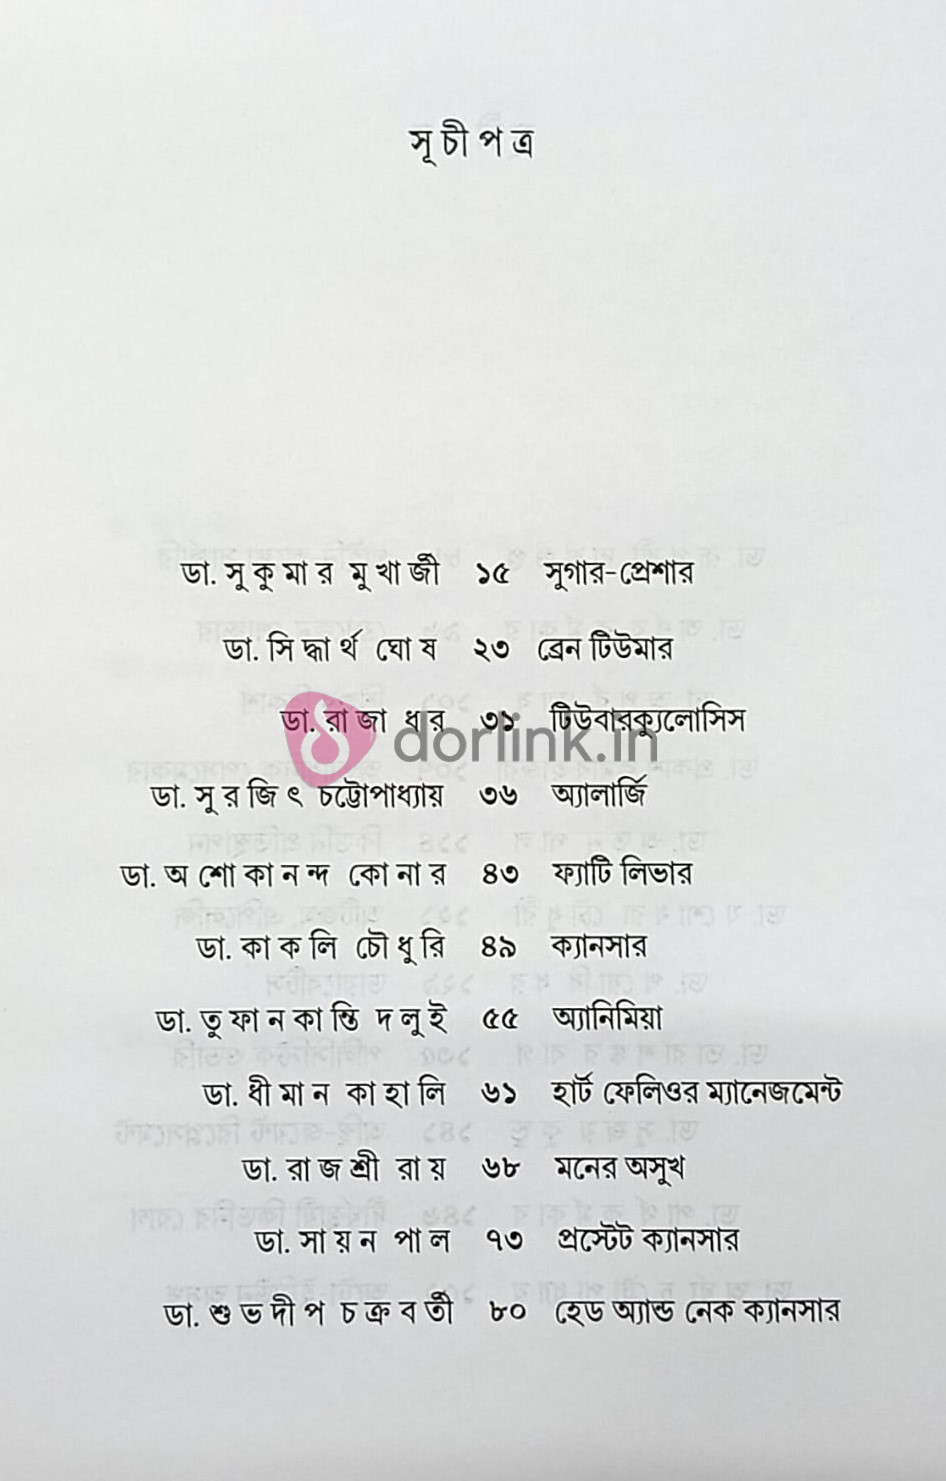 সূচীপত্র
ডা. সুকুমার মুখার্জী ১৫ সুগার-প্রেশার
ডা. সিদ্ধার্থ ঘোষ ২৩ ব্রেন টিউমার
ডা. রাজা ধর ৩১ টিউবারক্যুলোসিস
dorlink.in
ডা. সুরজিৎ চট্টোপাধ্যায় ৩৬ অ্যালার্জি
ডা. অশোকানন্দ কোনার ৪৩ ফ্যাটি লিভার
ডা. কাকলি চৌধুরি ৪৯ ক্যানসার
ডা. তুফানকান্তি দলুই ৫৫ অ্যানিমিয়া
ডা. ধীমান কাহালি ৬১ হার্ট ফেলিওর ম্যানেজমেন্ট
ডা. রাজশ্রী রায় ৬৮ মনের অসুখ
ডা. সায়ন পাল ৭৩ প্রস্টেট ক্যানসার
ডা. শুভদীপ চক্রবর্তী ৮০ হেড অ্যান্ড নেক ক্যানসার